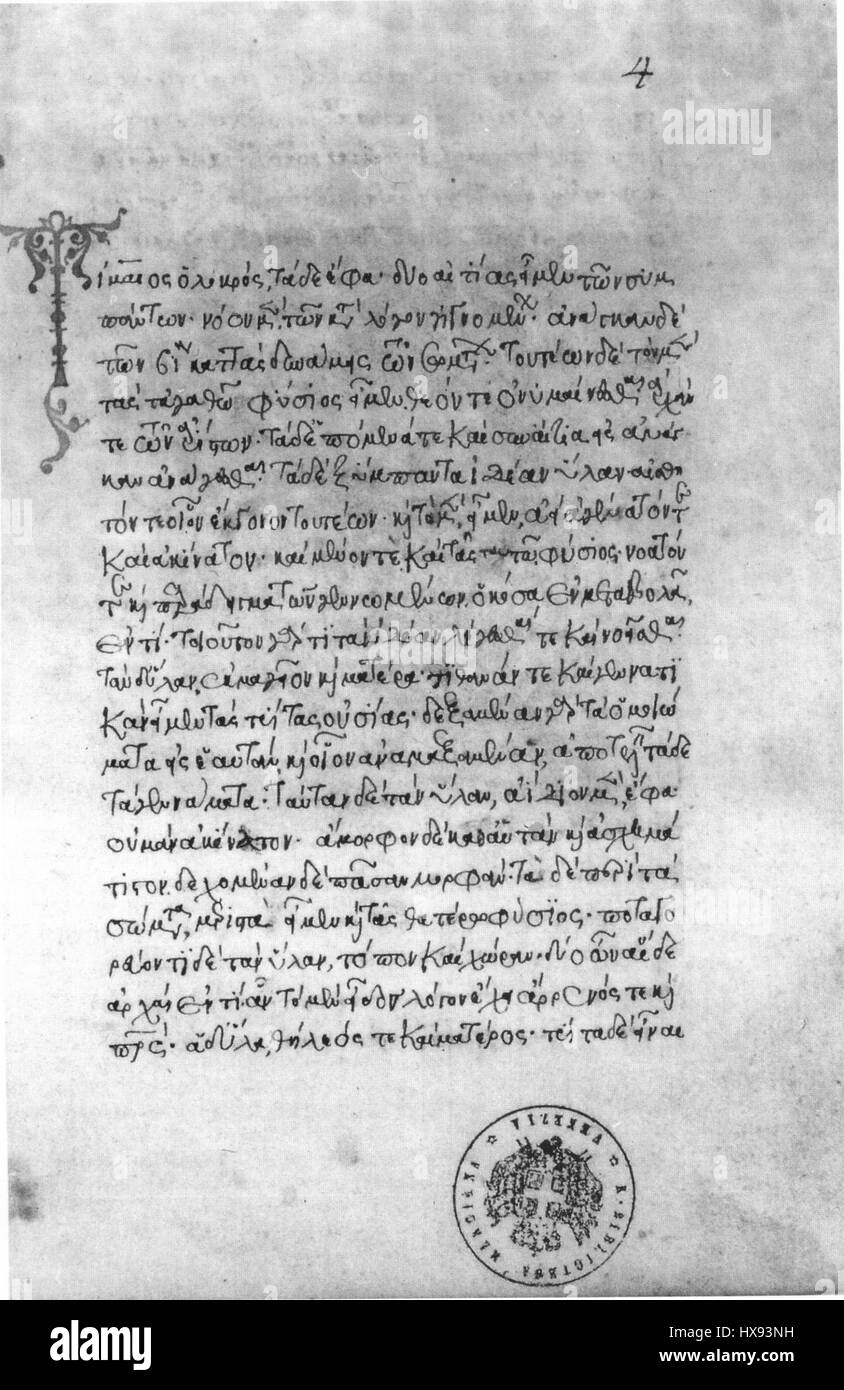 4
Τίμαιος ὁ λοκρός, τάδε ἔφα· δύο αἰτίας εἶμεν τῶν συμ
πάντων· νόον μὲν, τῶν κατὰ λόγον γιγνομένων· ἀνάγκαν δὲ
τῶν βίᾳ καττὰς δυνάμεις τῶν σωμάτων· τουτέων δὲ τὸν μὲν
τᾶς τἀγαθῶ φύσιος εἶμεν θεόν τε ὀνυμαίνεσθαι ἀρχάν
τε τῶν ἀρίστων· τὰ δ' ἑπόμενά τε καὶ συναίτια ἐς ἀνάγ
καν ἀνάγεσθαι· τὰ δὲ ξύμπαντα ἰδέαν ὕλαν αἰσθη
τόν τε οἷον ἔκγονον τουτέων· καὶ τὸ μὲν, εἶμεν, ἀεὶ ἀγένατόν τε
καὶ ἀκίνατον· καὶ μένον τε καὶ τᾶς ταὐτῶ φύσιος· νοατόν
τε καὶ παράδειγμα τῶν γεννωμένων. ὁκόσα ἐν μεταβολᾷ
ἐντί· τοιοῦτον γάρ τι τὰν ἰδέαν λέγεσθαί τε καὶ νοῆσθαι·
τὰν δ' ὕλαν, ἐκμαγεῖον καὶ ματέρα· τιθάναν τε καὶ γεννατι
κὰν εἶμεν τᾶς τρίτας οὐσίας· δεξαμέναν γὰρ τὰ ὁμοιώ
ματα ἐς ἑαυτὰν καὶ οἷον ἀναμαξαμέναν, ἀποτελεῖν τάδε
τὰ γεννάματα· ταύταν δὲ τὰν ὕλαν, ἀΐδιον μὲν, ἔφα·
οὐ μὰν ἀκίνατον· ἄμορφον δὲ καθ' αὑτὰν καὶ ἀσχημά
τιστον. δεχομέναν δὲ πᾶσαν μορφάν· τὰν δὲ περὶ τὰ
σώματα, μεριστὰν εἶμεν καὶ τᾶς θατέρω φύσιος· ποταγο
ρεύοντι δὲ τὰν ὕλαν, τόπον καὶ χώραν· δύο ὦν αἵδε
ἀρχαὶ ἐντίαι ἇν τὸ μὲν εἶδος λόγον ἔχει ἄρρενός τε καὶ
πατρός· ἁ δ' ὕλα, θήλεός τε καὶ ματέρος· τρίτα δὲ εἶμεν
R. BIBLIOTECA MARCIANA VENEZIA
alamy
alamy stock photo
HX93NH
www.alamy.com